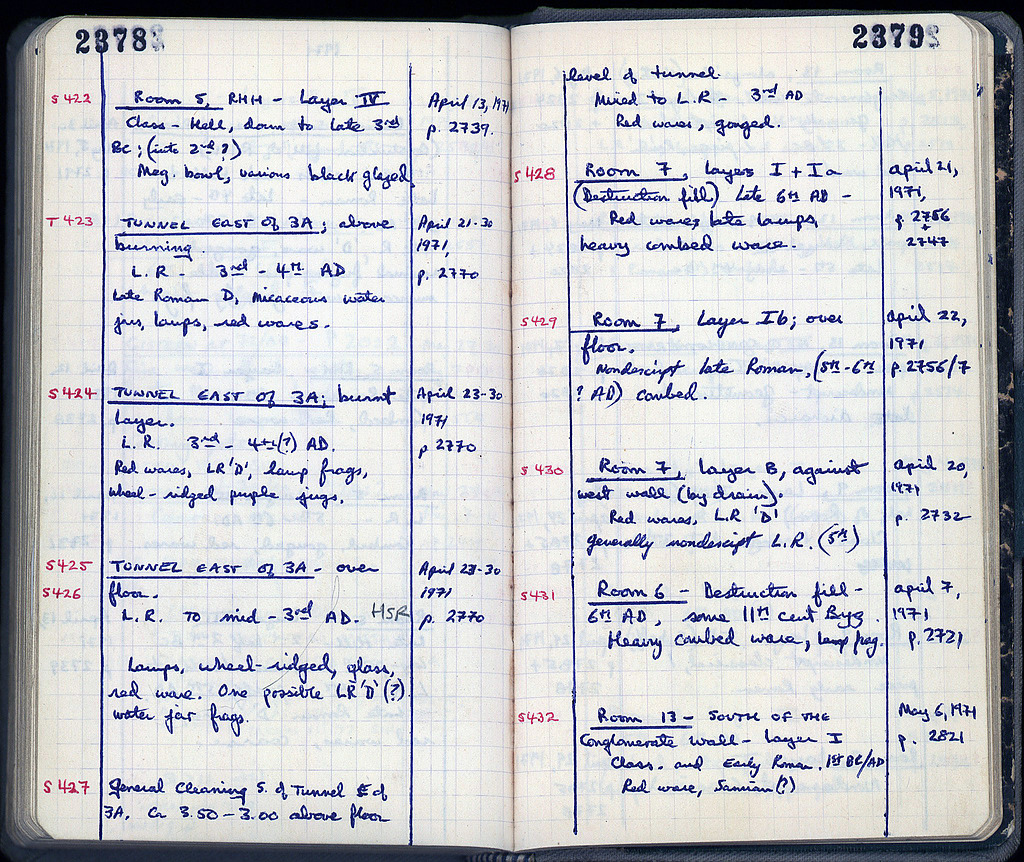 2378
S 422 Room 5, RHH - Layer IV April 13, 1971
Class - Hell, down to late 3rd p. 2739.
BC; (into 2nd ?)
Meg. bowl, various black glazed
T 423 TUNNEL EAST OF 3A; above April 21-30
burning. 1971,
L. R - 3rd - 4th AD p. 2770
Late Roman D, micaceous water
jars, lamps, red wares.
S 424 TUNNEL EAST OF 3A; burnt April 23-30
Layer. 1971
L. R. 3rd - 4th(?) AD. p 2770
Red wares, LR 'D', lamp frags,
wheel-ridged purple jugs.
S 425 TUNNEL EAST OF 3A - over April 28-30
S 426 floor. 1971
L. R. To mid - 3rd AD. HSR p. 2770
Lamps, wheel-ridged, glass,
red ware. One possible LR 'D' (?)
water jar frags.
S 427 General Cleaning S. of Tunnel E of
3A. Ca 3.50 - 3.00 above floor
2379
level of tunnel.
Mixed to L.R - 3rd AD
Red wares, gouged.
S 428 Room 7, Layers I + Ia april 21,
(Destruction fill) Late 6th AD - 1971,
Red wares, late lamps, p. 2756
+
heavy combed ware. 2747
S 429 Room 7, Layer Ib; over april 22,
floor. 1971
Nondescript late Roman, (5th - 6th p. 2756/7
? AD) combed.
S 430 Room 7, Layer B, against april 20,
west wall (by drain). 1971
Red wares, L.R 'D' p. 2732
generally nondescript L.R. (5th)
S 431 Room 6 - Destruction fill - april 7,
6th AD, some 11th cent Byz. 1971
Heavy combed ware, lamp frag. p. 2721
S 432 Room 13 - SOUTH OF THE May 6, 1971
Conglomerate wall - Layer I p. 2821
Class. and Early Roman. 1st BC/AD
Red ware, Samian (?)